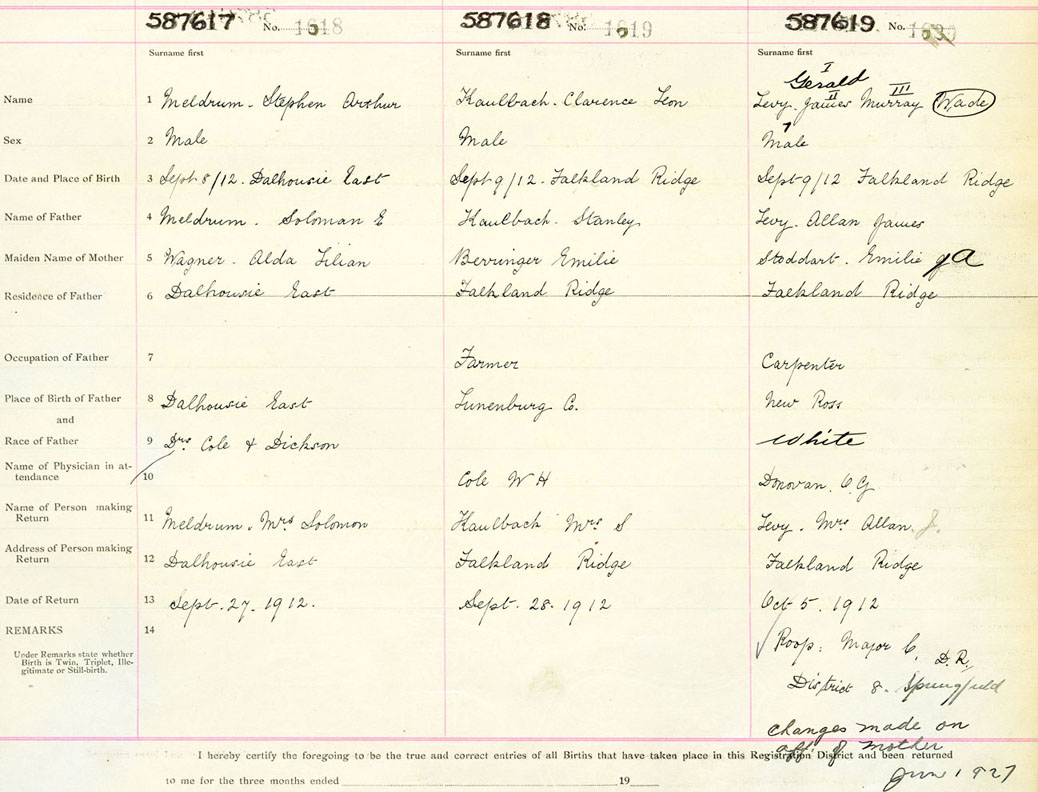 587617 No. 1618 587618 No. 1619 587619 No.
Surname first Surname first Surname first
I
Gerald
II III
Name 1 Meldrum. Stephen Arthur Kaulbach. Clarence Leon Levy. James Murray Wade
Sex 2 Male Male Male
Date and Place of Birth 3 Sept 8/12. Dalhousie East Sept 9/12. Falkland Ridge Sept 9/12 Falkland Ridge
Name of Father 4 Meldrum. Soloman E Kaulbach. Stanley Levy. Allan James
Maiden Name of Mother 5 Wagner. Alda Lilian Berringer Emilie Stoddart. Emilie
Residence of Father 6 Dalhousie East Falkland Ridge Falkland Ridge
Occupation of Father 7 Farmer Carpenter
Place of Birth of Father 8 Dalhousie East Lunenburg Co. New Ross
and
Race of Father 9 Drs Cole & Dickson White
Name of Physician in at-
tendance 10 Cole W H Donovan. O G
Name of Person making
Return 11 Meldrum. Mrs Solomon Kaulback Mrs S Levy. Mrs Allan J.
Address of Person making
Return 12 Dalhousie East Falkland Ridge Falkland Ridge
Date of Return 13 Sept. 27. 1912. Sept. 28. 1912 Oct 5. 1912
REMARKS 14
Under Remarks state whether
Birth is Twin, Triplet, Ille-
gitimate or Still-birth.
Roop. Major C. D.R.
District 8. Springfield
changes made on
aff. of mother
I hereby certify the foregoing to be the true and correct entries of all Births that have taken place in this Registration District and been returned
to me for the three months ended 19
1927